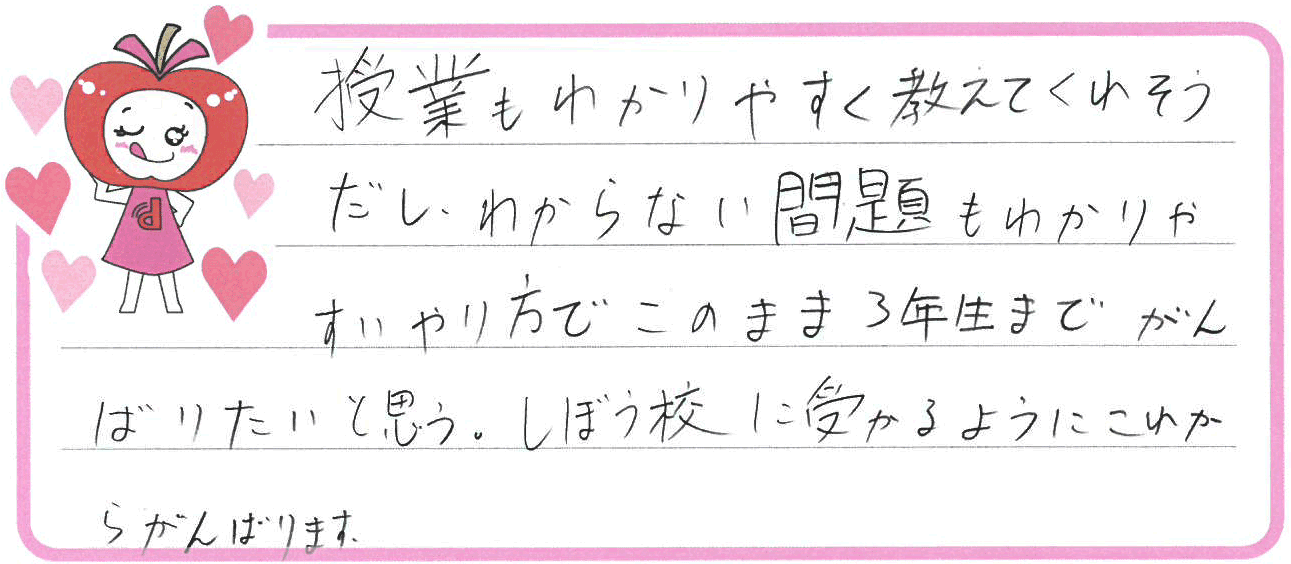 授業もわかりやすく教えてくれそう
だし、わからない問題もわかりや
すいやり方でこのまま3年生までがん
ばりたいと思う。しぼう校に受かるようにこれか
らがんばります。